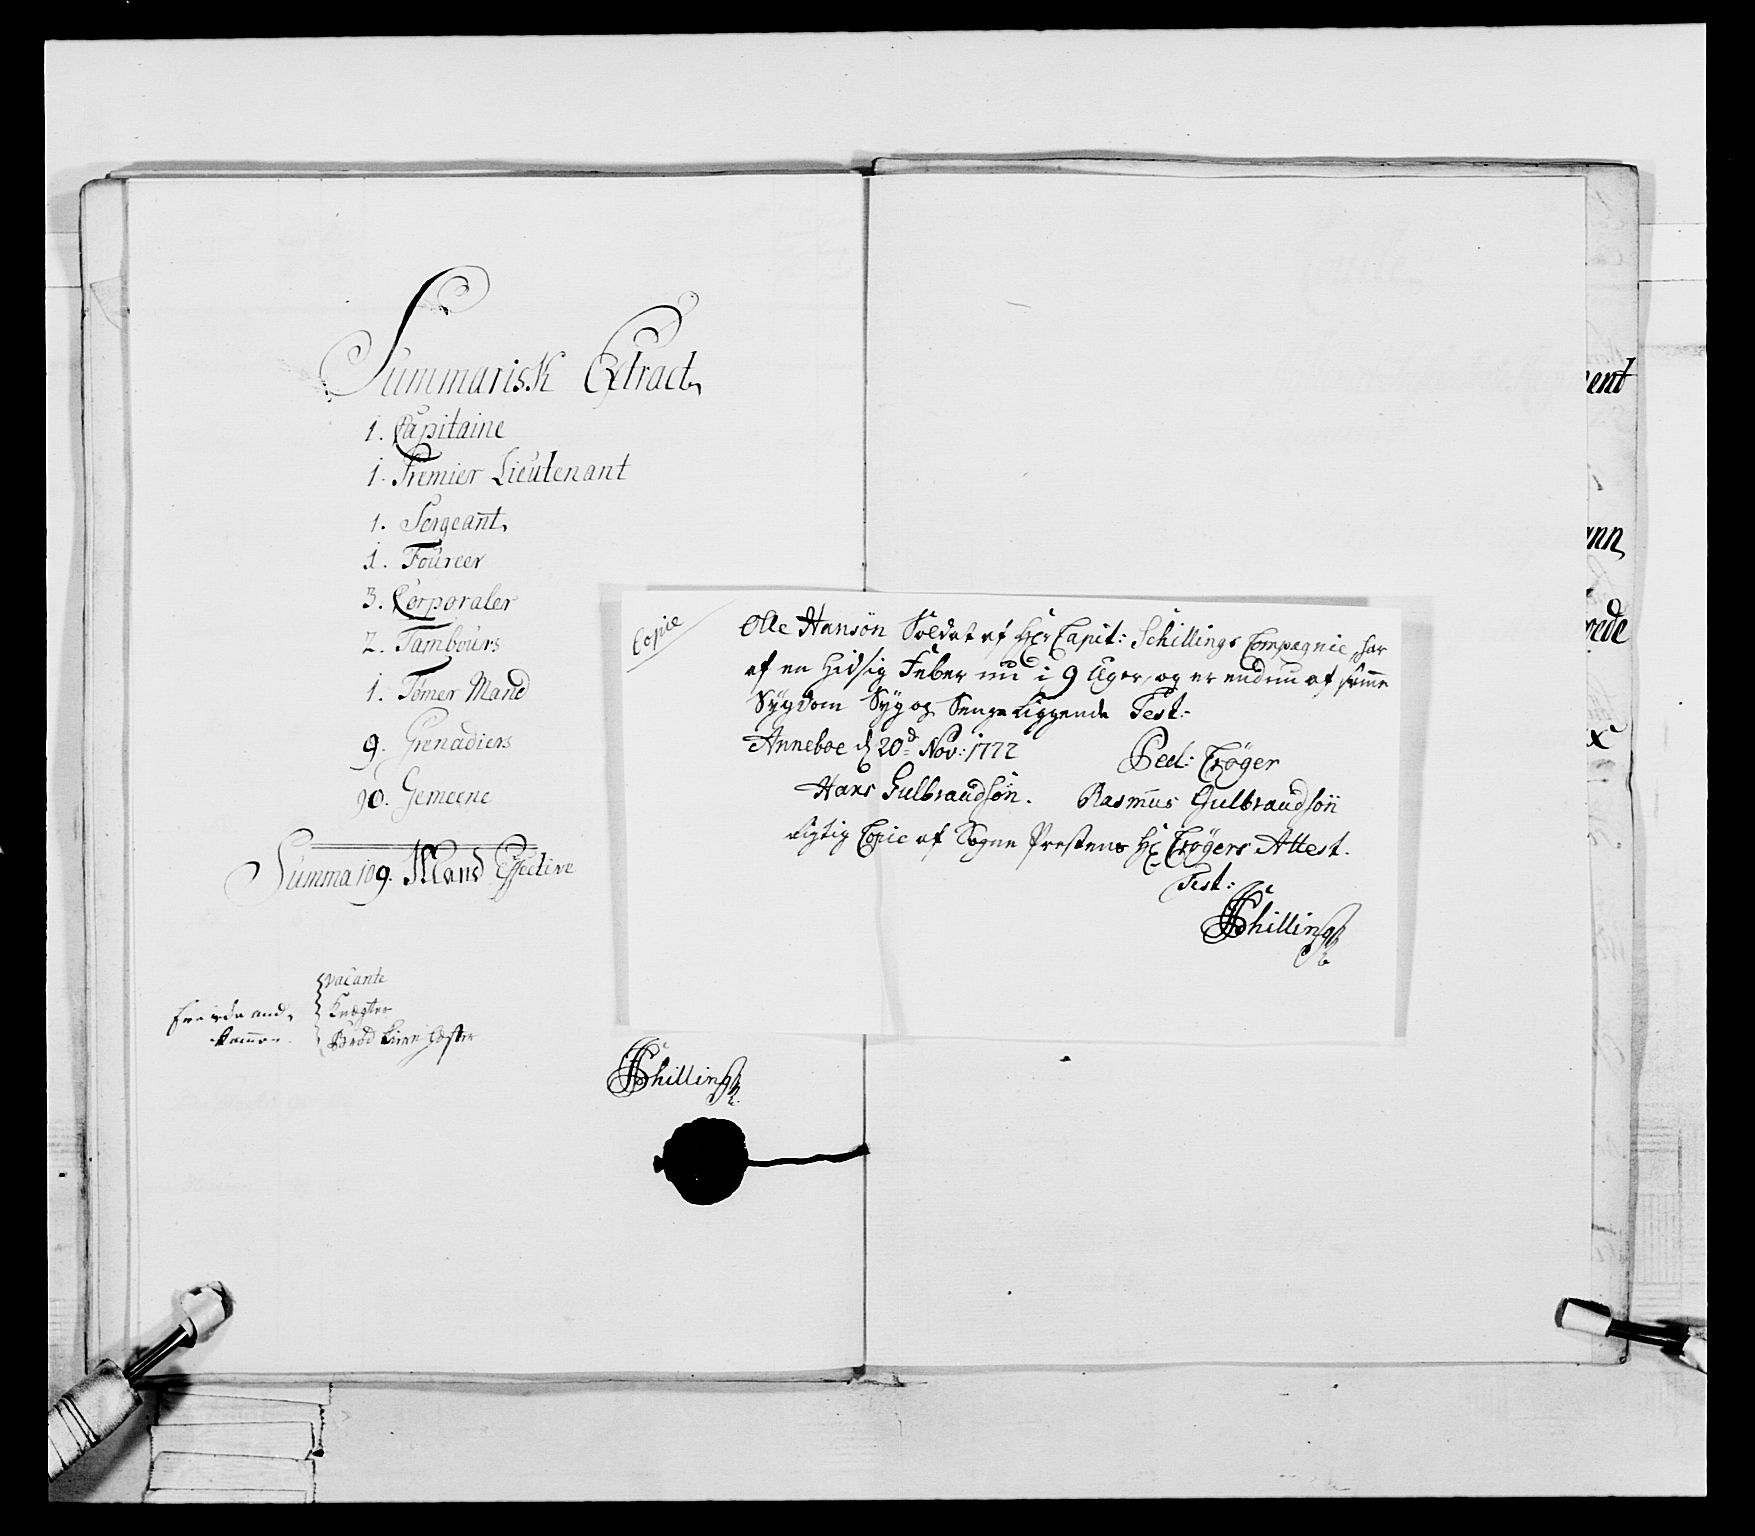 Summarisk Extract,
1. Capitaine
1. Premier Lieutenant
1. Sergeant,
1. Foureer
3. Corporaler
2. Tambours
1. Tømer Mand
9. Grenadiers
90. Gemeene
Summa 109. Mand Effective
vacante
Knægter
Schilling
Copie
Olle Hansön Soldat af Hr Capit: Schillings Compagnie, har
af en hidsig Feber nu i 9 Uger, og er endnu af samme
Sygdom Syg og Sengeliggende Test:
Anneboe d 20d Nov: 1772
Ped: Crøger
Hans Gulbrandsön. Rasmus Gulbrandsön
rigtig Copie af Sogne Præstens Hr Crøgers Attest.
Test:
Schilling
ent
ann
rede
x